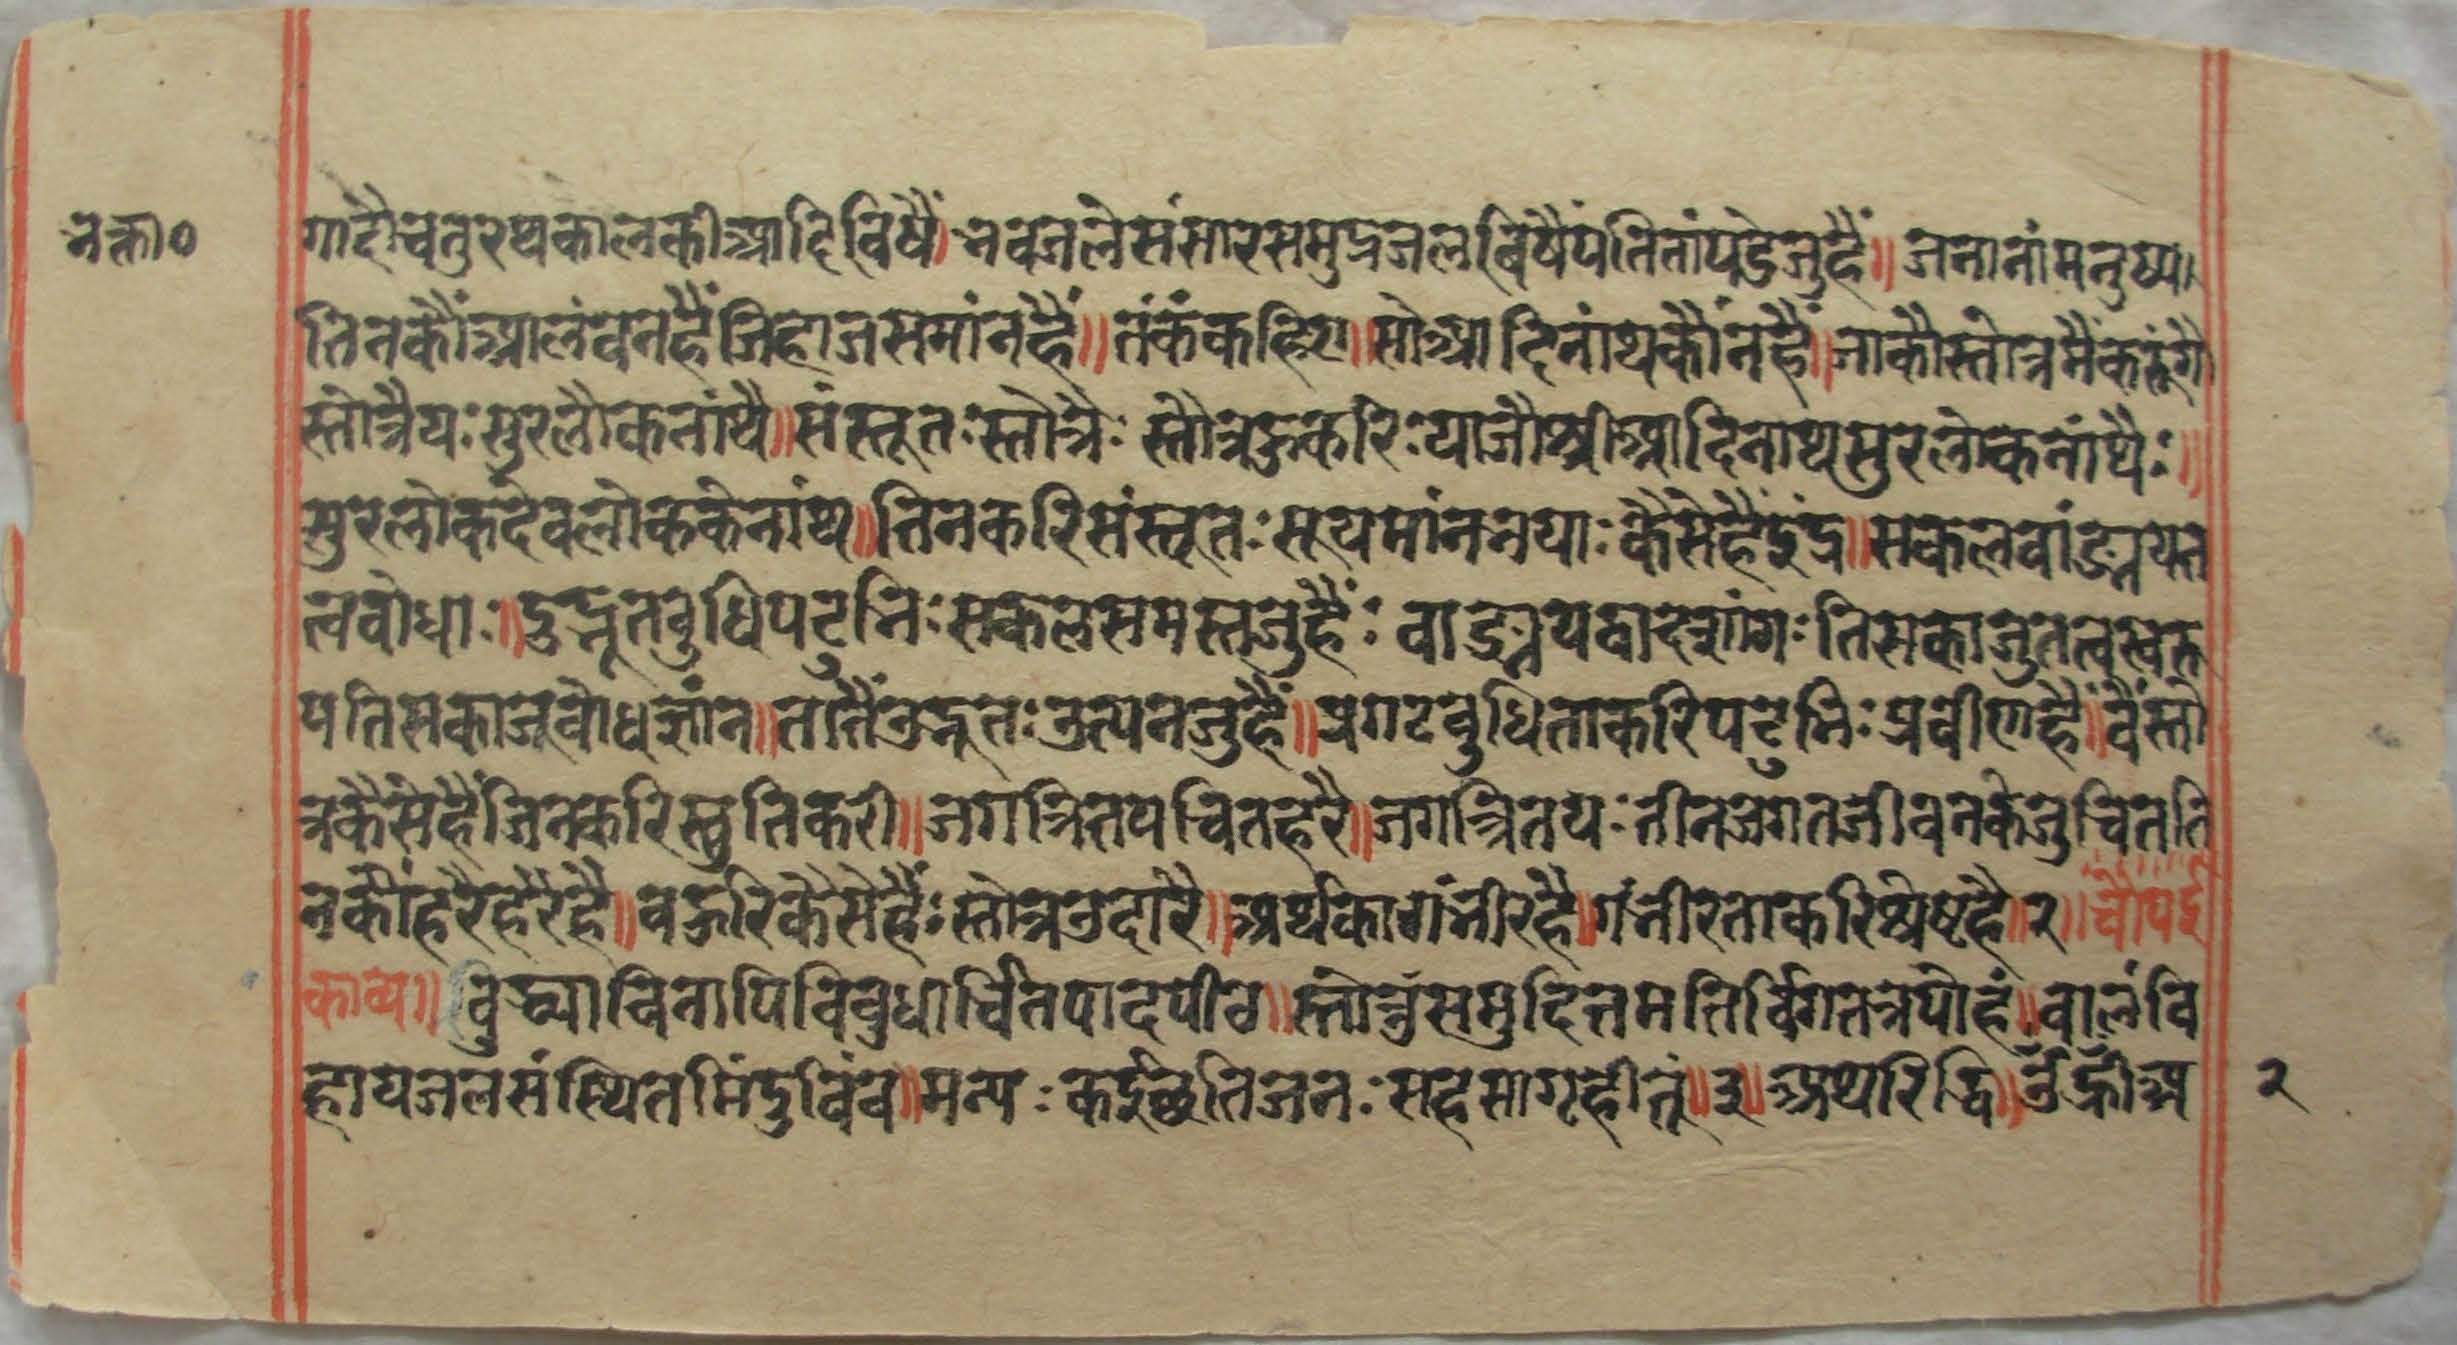 भक्ता०
गादौचतुरथकालकीआदिविषैं॥भवजलेसंसारसमुद्रजलबिषैपंतितांपडेजुहैं॥जनानांमनुष्य॥
तिनकौंआलंबनहैंजिहाजसमांनहैं॥तंकंकहिए॥सोआदिनांथकौंनहैं॥जाकौस्तोत्रमैंकरूंगौ
स्तोत्रैयः सुरलौकनांथै॥संस्तूतः स्तोत्रैः स्तौत्रऊकरिः याजौश्रीआदिनाथसुरलोकनांथैः॥
सुरलोकदेवलोककेनांथ॥तिनकरिसंस्तूतः स्तूयमांनभयाः कैसेहैंइंद्र॥सकलवांङ्मयत
त्वबोधाः॥दुद्भूतबुधिपटुभिः सकलसमस्तजुहैंः वाङ्मयद्वादशांगः तिसकाजुतत्वस्वरू
पतिसकाजूबोधज्ञांन॥तांतैंउद्भूतः उत्पनजुहैं॥प्रगटबुधिताकरिपटुभिः प्रवीणहैं॥वैंस्तो
त्रकैसैहैंजिनकरिस्तुतिकरी॥जगत्रितयचितहरै॥जगत्रितयः तीनजगतजीवनकेजुचितति
नकौंहरैहरैहै॥बऊरिकैसेहैंः स्तोत्रउदारै॥अर्थकागंभीरहै॥गंभीरताकरिश्रेष्टहै॥२॥चौपई
काव्य॥बुद्ध्याविनापिविबुधार्चितपादपीठ॥स्तोत्रुंसमुदितमतिर्विगतत्रपोहं॥बालंवि
हायजलसंस्थितमिंदुबिंब॥मन्यः कईछतिजनः सहसागृहीतूं॥३॥अथरिद्धि॥उँह्रींअ
२